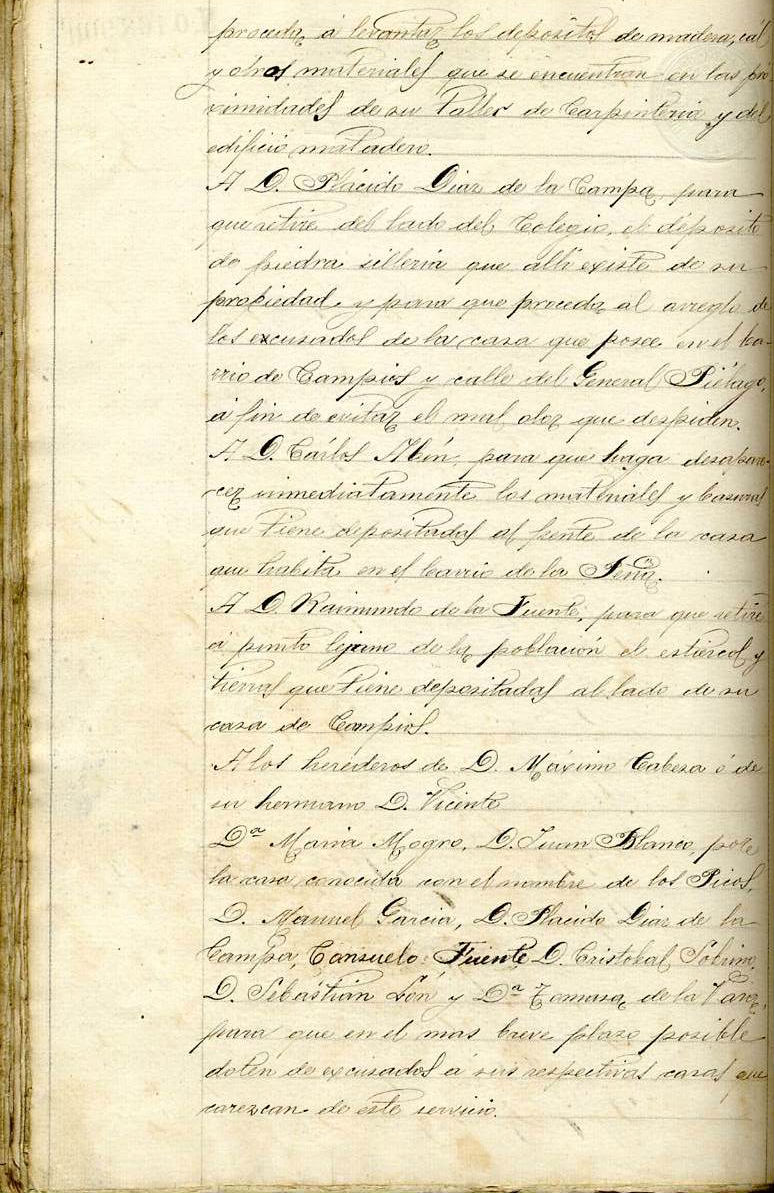 proceda á levantar los depositos de madera, cal
y otros materiales que se encuentran en las pro
ximidades de su Taller de Carpinteria y del
edificio matadero.
A D. Plácido Diaz de la Campa, para
que retire del lado del Colegio, el déposito
de piedra silleria que alli existe de su
propiedad y para que proceda al arreglo de
los excusados de la casa que posee en el ba-
rrio de Campios y calle del General Piélago,
á fin de evitar el mal olor que despiden.
A D. Cárlos Albin, para que haga desapare-
cer inmediatamente los materiales y basuras
que tiene depositadas al frente de la casa
que habita en el barrio de la Peña.
A D. Raimundo de la Fuente, para que retire
á punto lejano de la población el estiercol y
tierras que tiene depositadas al lado de su
casa de Campios.
A los heréderos de D. Máximo Cabeza ó de
su hermano D. Vicente
Dª Maria Mogro, D. Juan Blanco, por
la casa conocida con el nombre de los Picos,
D. Manuel Garcia, D. Placido Diaz de la
Campa, Consuelo Fuente D. Cristobal Sobrino,
D. Sebástian Són y Dª Tomasa de la Vara,
para que en el mas breve plazo posible
doten de excusados á sus respectivas casas que
carezcan de este servicio.